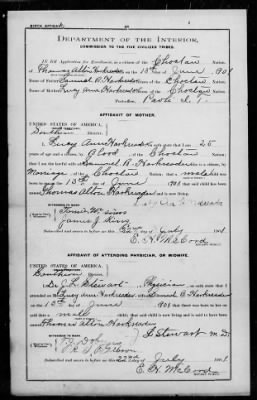 BIRTH AFFIDAVIT.
DEPARTMENT OF THE INTERIOR,
COMMISSION TO THE FIVE CIVILIZED TRIBES.
IN RE Application for Enrollment, as a citizen of the Choctaw Nation,
of Thomas Alton Harkreader, born on the 13th day of June, 1901
Name of Father: Samuel R. Harkreader a citizen of the Choctaw Nation.
Name of Mother: Lucy Ann Harkreader a citizen of the Choctaw Nation.
Post-office, Paoli I. T.
AFFIDAVIT OF MOTHER.
UNITED STATES OF AMERICA,
Southern District.
I, Lucy Ann Harkreader, on oath state that I am 25
years of age and a citizen, by blood, of the Choctaw Nation;
that I am the lawful wife of Samuel R. Harkreader, who is a citizen, by
Marriage of the Choctaw Nation; that a male child was
born to me on 13th day of June, 1901; that said child has been
named Thomas Alton Harkreader, and is now living.
WITNESSES TO MARK:
James J. King
Subscribed and sworn to before me this day of July, 1901.
E. H. McCord
AFFIDAVIT OF ATTENDING PHYSICIAN, OR MIDWIFE.
UNITED STATES OF AMERICA,
Southern District.
I, Stewart, a Physician, on oath state that I
attended on Mrs. Lucy Ann Harkreader, wife of Samuel R. Harkreader
on the 13th day of June, 1901; that there was born to her on said date a
male child; that said child is now living and is said to have been named
Thomas Alton Harkreader
Stewart M.D.
WITNESSES TO MARK:
Subscribed and sworn to before me this day of July, 1901.
E. H. McCord